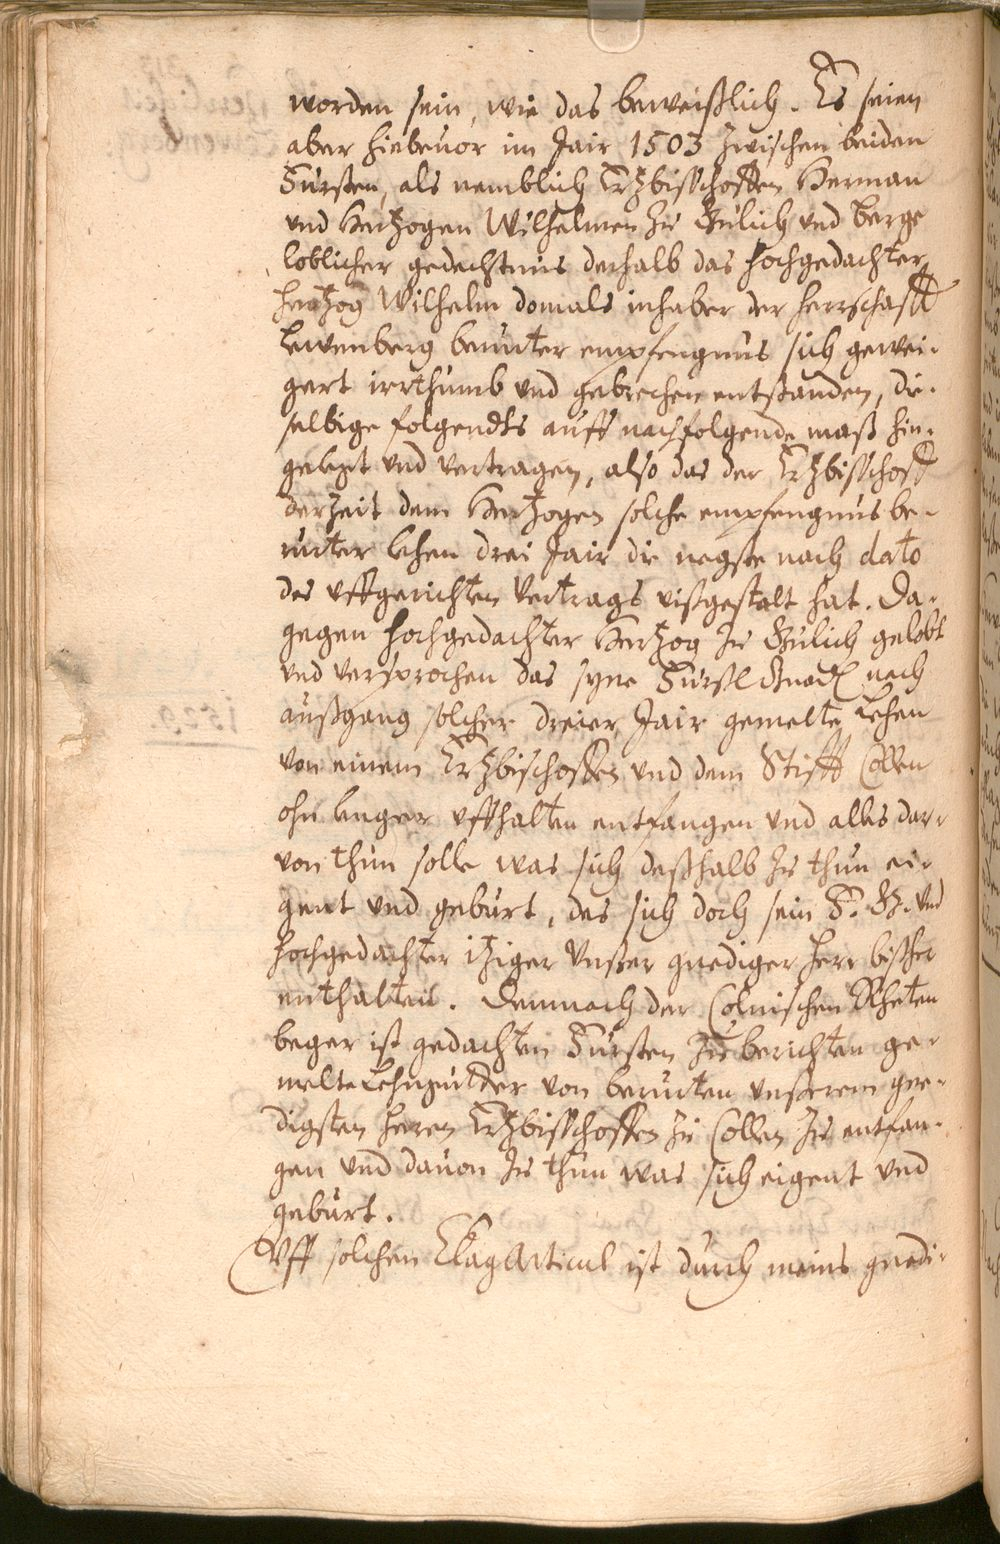 worden sein, wie das beweißlich. Es seien
aber hiebeuor im Jair 1503 zwischen beiden
Fursten, als nemblich Ertzbisschoffen Herman
vnd Hertzogen Wilhelmen zu Gulich vnd Berge
loblicher gedechtnus derhalb das hochgedachter
Hertzog Wilhelm domals inhaber der herrschafft
Lewenberg berurter empfengnus sich gewei-
gert irrthumb vnd gebrechen entstanden, die-
selbige folgendts auff nachfolgende maß hin-
gelegt vnd vertragen, also das der Ertzbisschoff
derzeit dem Hertzogen solche empfengnus be-
rurter lehen drei Jair die negste nach dato
des vffgerichten Vertrags vißgestalt hat. Da-
gegen hochgedachter Hertzog zu Gulich gelobt
vnd versprochen das syne Furstl Gnad nach
außgang solcher dreier Jair gemelte Lehen
von einem Ertzbischoffen vnd dem Stifft Collen
ohn lenger vffhalten entfangen vnd alles dar-
von thun solle was sich deßhalb zu thun ei-
gent vnd geburt, des sich doch sein F. G. vnd
hochgedachter itziger Vnser gnediger Herr bißher
enthalten. Demnach der Colnischen Rheten
beger ist gedachten Fursten zu berichten ge-
melte Lehngueder von berurten vnserem gne-
digsten Heren Ertzbisschoffen zu Collen zu entfan-
gen vnd dauon zu thun was sich eigent vnd
geburt.
Vff solchen Clag Articul ist durch meins gnedi-